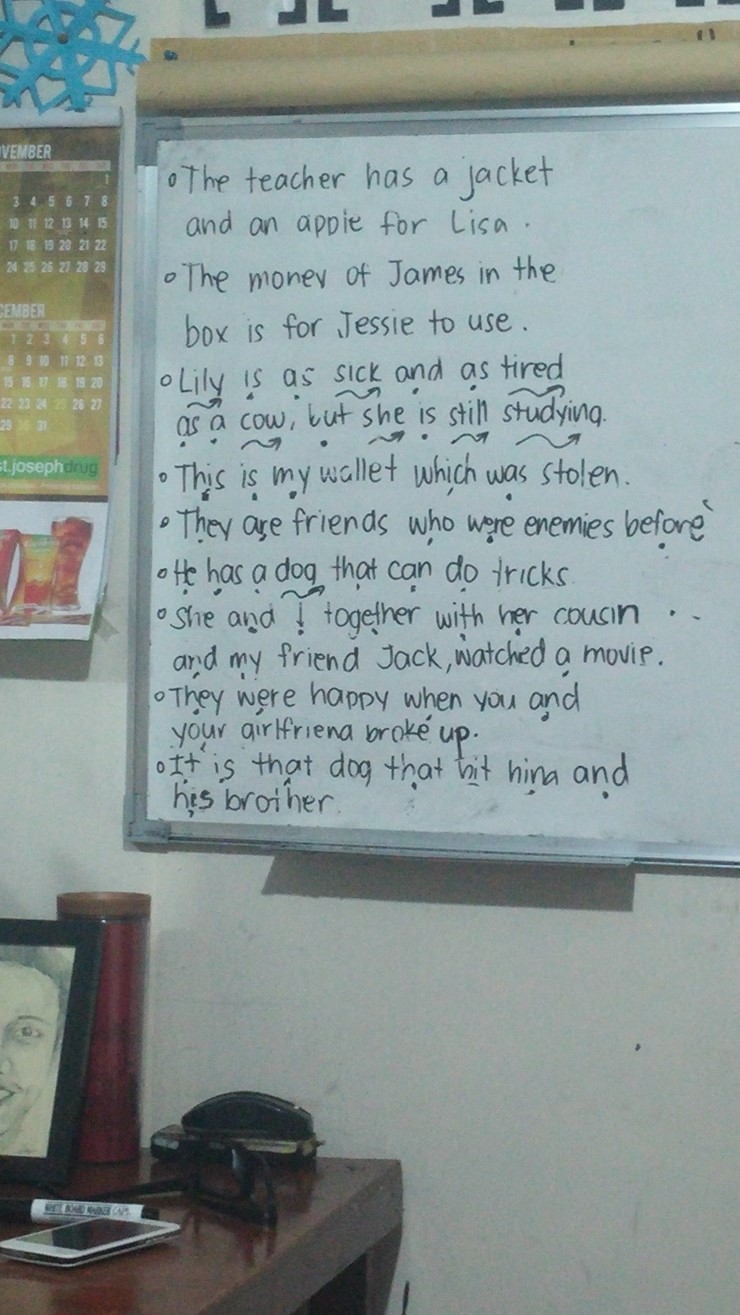 VEMBER
1
3 4 5 6 7 8
10 11 12 13 14 15
17 18 19 20 21 22
24 25 26 27 28 29
CEMBER
1 2 3 4 5 6
8 9 10 11 12 13
15 16 17 18 19 20
22 23 24 25 26 27
29 30 31
st.josephdrug
The teacher has a jacket
and an apple for Lisa.
The money of James in the
box is for Jessie to use.
Lily is as sick and as tired
as a cow, but she is still studying.
This is my wallet which was stolen.
They are friends who were enemies before
He has a dog that can do tricks
She and I together with her cousin
and my friend Jack, watched a movie.
They were happy when you and
your girlfriend broke up.
It is that dog that bit him and
his brother.
WHITE BOARD MARKER